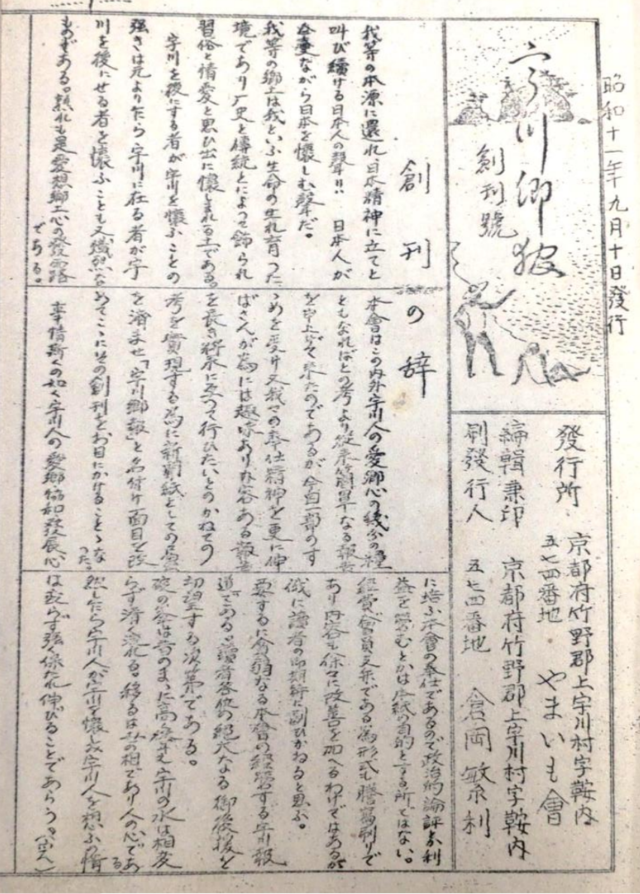 昭和十一年九月十日發行
宇川郷報
創刊號
發行所
京都府竹野郡上宇川村字鞍内
五七四番地
やまいも會
編輯兼印
刷發行人
京都府竹野郡上宇川村字鞍内
五七四番地
倉岡繁利
創刊の辞
我等の本源に還れ、日本精神に立てと
叫び續ける日本人の聲!! 日本人が
ながら日本を懐しむ聲だ。
我等の郷土は我といふ生命の生れ育つた
境であり厂史と傳統とによつて飾られ
習俗と情愛と思ひ出に懐しまれる土である。
宇川を後にする者が宇川を懐ふことの
強さは元より乍ら宇川に在る者が宇
川を後にせる者を懐ふことも又熾烈な
ものがある。熟れも是愛想郷土心の發露
である。
本會はこの内外宇川人の愛郷心の幾分の糧
ともなればとの考より従来簡単なる報告
を申上げて来たのであるが、今回一部のす
めを受け又我々の奉仕精神を更に伸
ばさんが為には趣味あり内容ある報告
を長き将来に亙つて行ひたいとのかねての
考を實現する為に新聞紙としての
を済ませ「宇川郷報」と名付け面目を改
めてここにその創刊をお目にかけることゝな
つた。
事情斯くの如く宇川人の愛郷協和發展心
に培ふ本會の奉仕であるので政治的論評や利
益を営むとかは本紙の目的とする所ではない。
經費が會員支弁である為形式も謄写刷りで
あり内容も徐々に改善を加へるわけではあるが
俄に讀者の御期待に副ひかねると思ふ。
要するに會報なる本會の經営する宇川報
道である。讀者各位の絶大なる御後援を
切望する次第である。
の峯は昔のまゝに高く聳え宇川の水は相変
らず清く流れる。移るは世の相であり人の心であ
る
然したら宇川人が宇川を懐しみ宇川人を想ふの情
は改らず強く保たれ伸びることであらうき